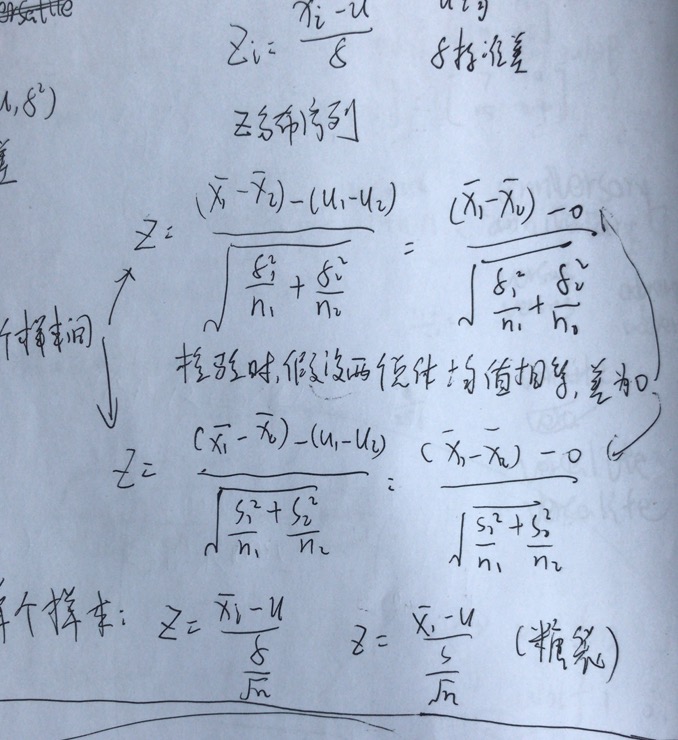 Zi = (xi - u) / δ
δ标准差
u, δ²)
差
Z分布序列
Z = ((x̄₁ - x̄₂) - (u₁ - u₂)) / √(δ₁²/n₁ + δ₂²/n₂) = ((x̄₁ - x̄₂) - 0) / √(δ₁²/n₁ + δ₂²/n₂)
个样本间
检验时,假设两总体均值相等,差为0
Z = ((x̄₁ - x̄₂) - (u₁ - u₂)) / √(S₁²/n₁ + S₂²/n₂) = ((x̄₁ - x̄₂) - 0) / √(S₁²/n₁ + S₂²/n₂)
单个样本: Z = (x̄i - u) / (δ/√n) Z = (x̄i - u) / (s/√n) (糖袋)